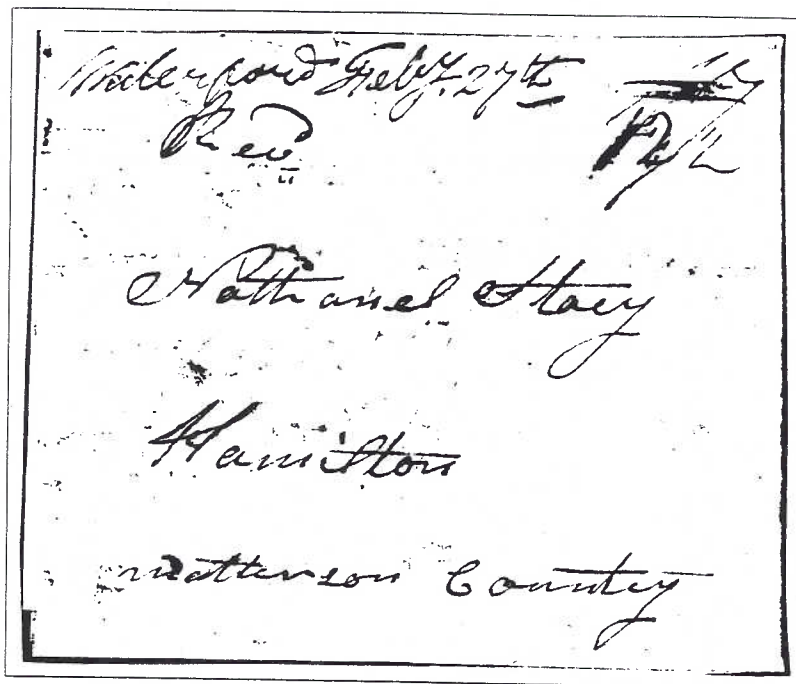 Waterford Feby. 27th
Rev 12½
Nathaniel Stacy
Hamilton
Matterson County